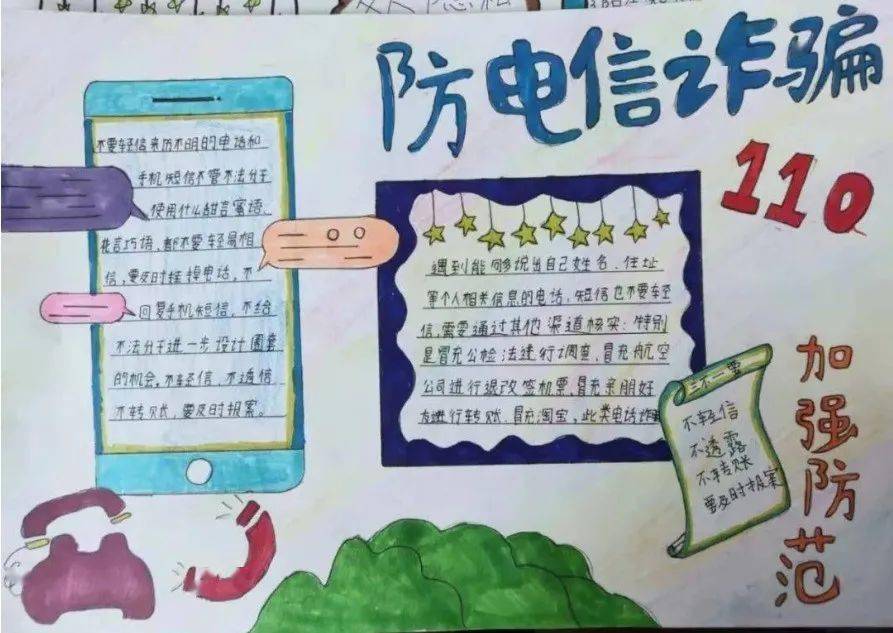 防电信诈骗
110
不要轻信来历不明的电话和
手机短信不管不法分子
使用什么甜言蜜语、
花言巧语,都不要轻易相
信,要及时挂掉电话,不
回复手机短信,不给
不法分子进一步设计圈套
的机会。不轻信,不透信
不转账,要及时报案。
遇到能够说出自己姓名、住址
等个人相关信息的电话,短信也不要轻
信,需要通过其他渠道核实:特别
是冒充公检法进行调查,冒充航空
公司进行退改签机票,冒充亲朋好
友进行转账、冒充淘宝,此类电话诈
三不一要
不轻信
不透露
不转账
要及时报案
加强防范